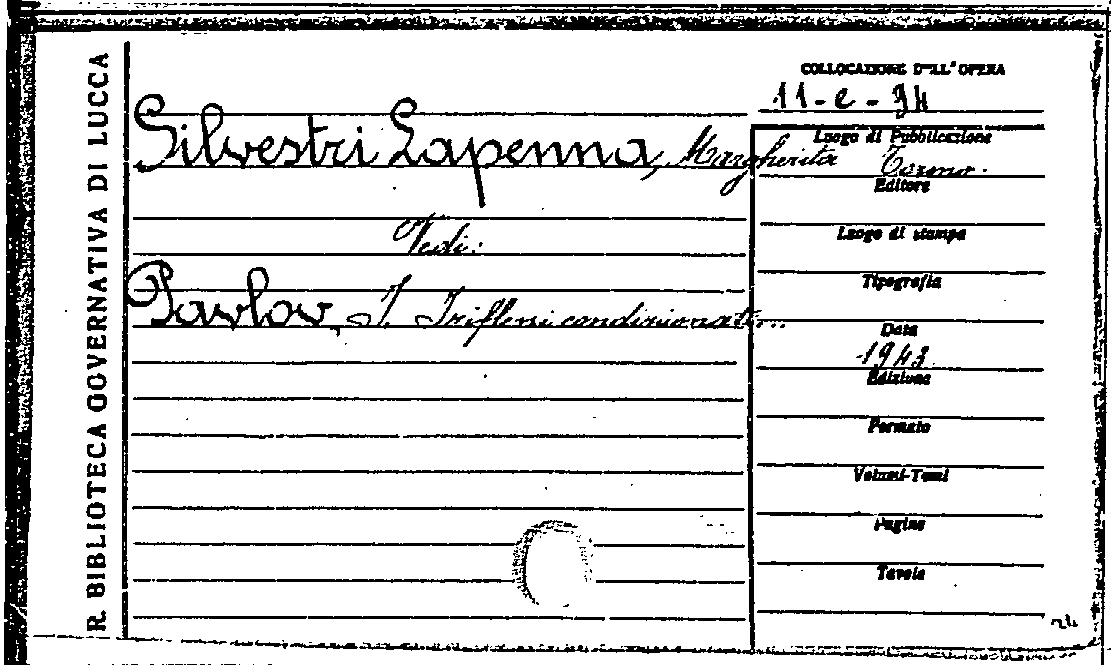 R. BIBLIOTECA GOVERNATIVA DI LUCCA
COLLOCAZIONE DELL'OPERA
11-e-94
Silvestri Lapenna, Margherita
Luogo di Pubblicazione
Torino.
Editore
Vedi:
Luogo di stampa
Tipografia
Pavlov, I. I riflessi condizionati...
Data
1943
Edizione
Formato
Volumi-Tomi
Pagine
Tavole